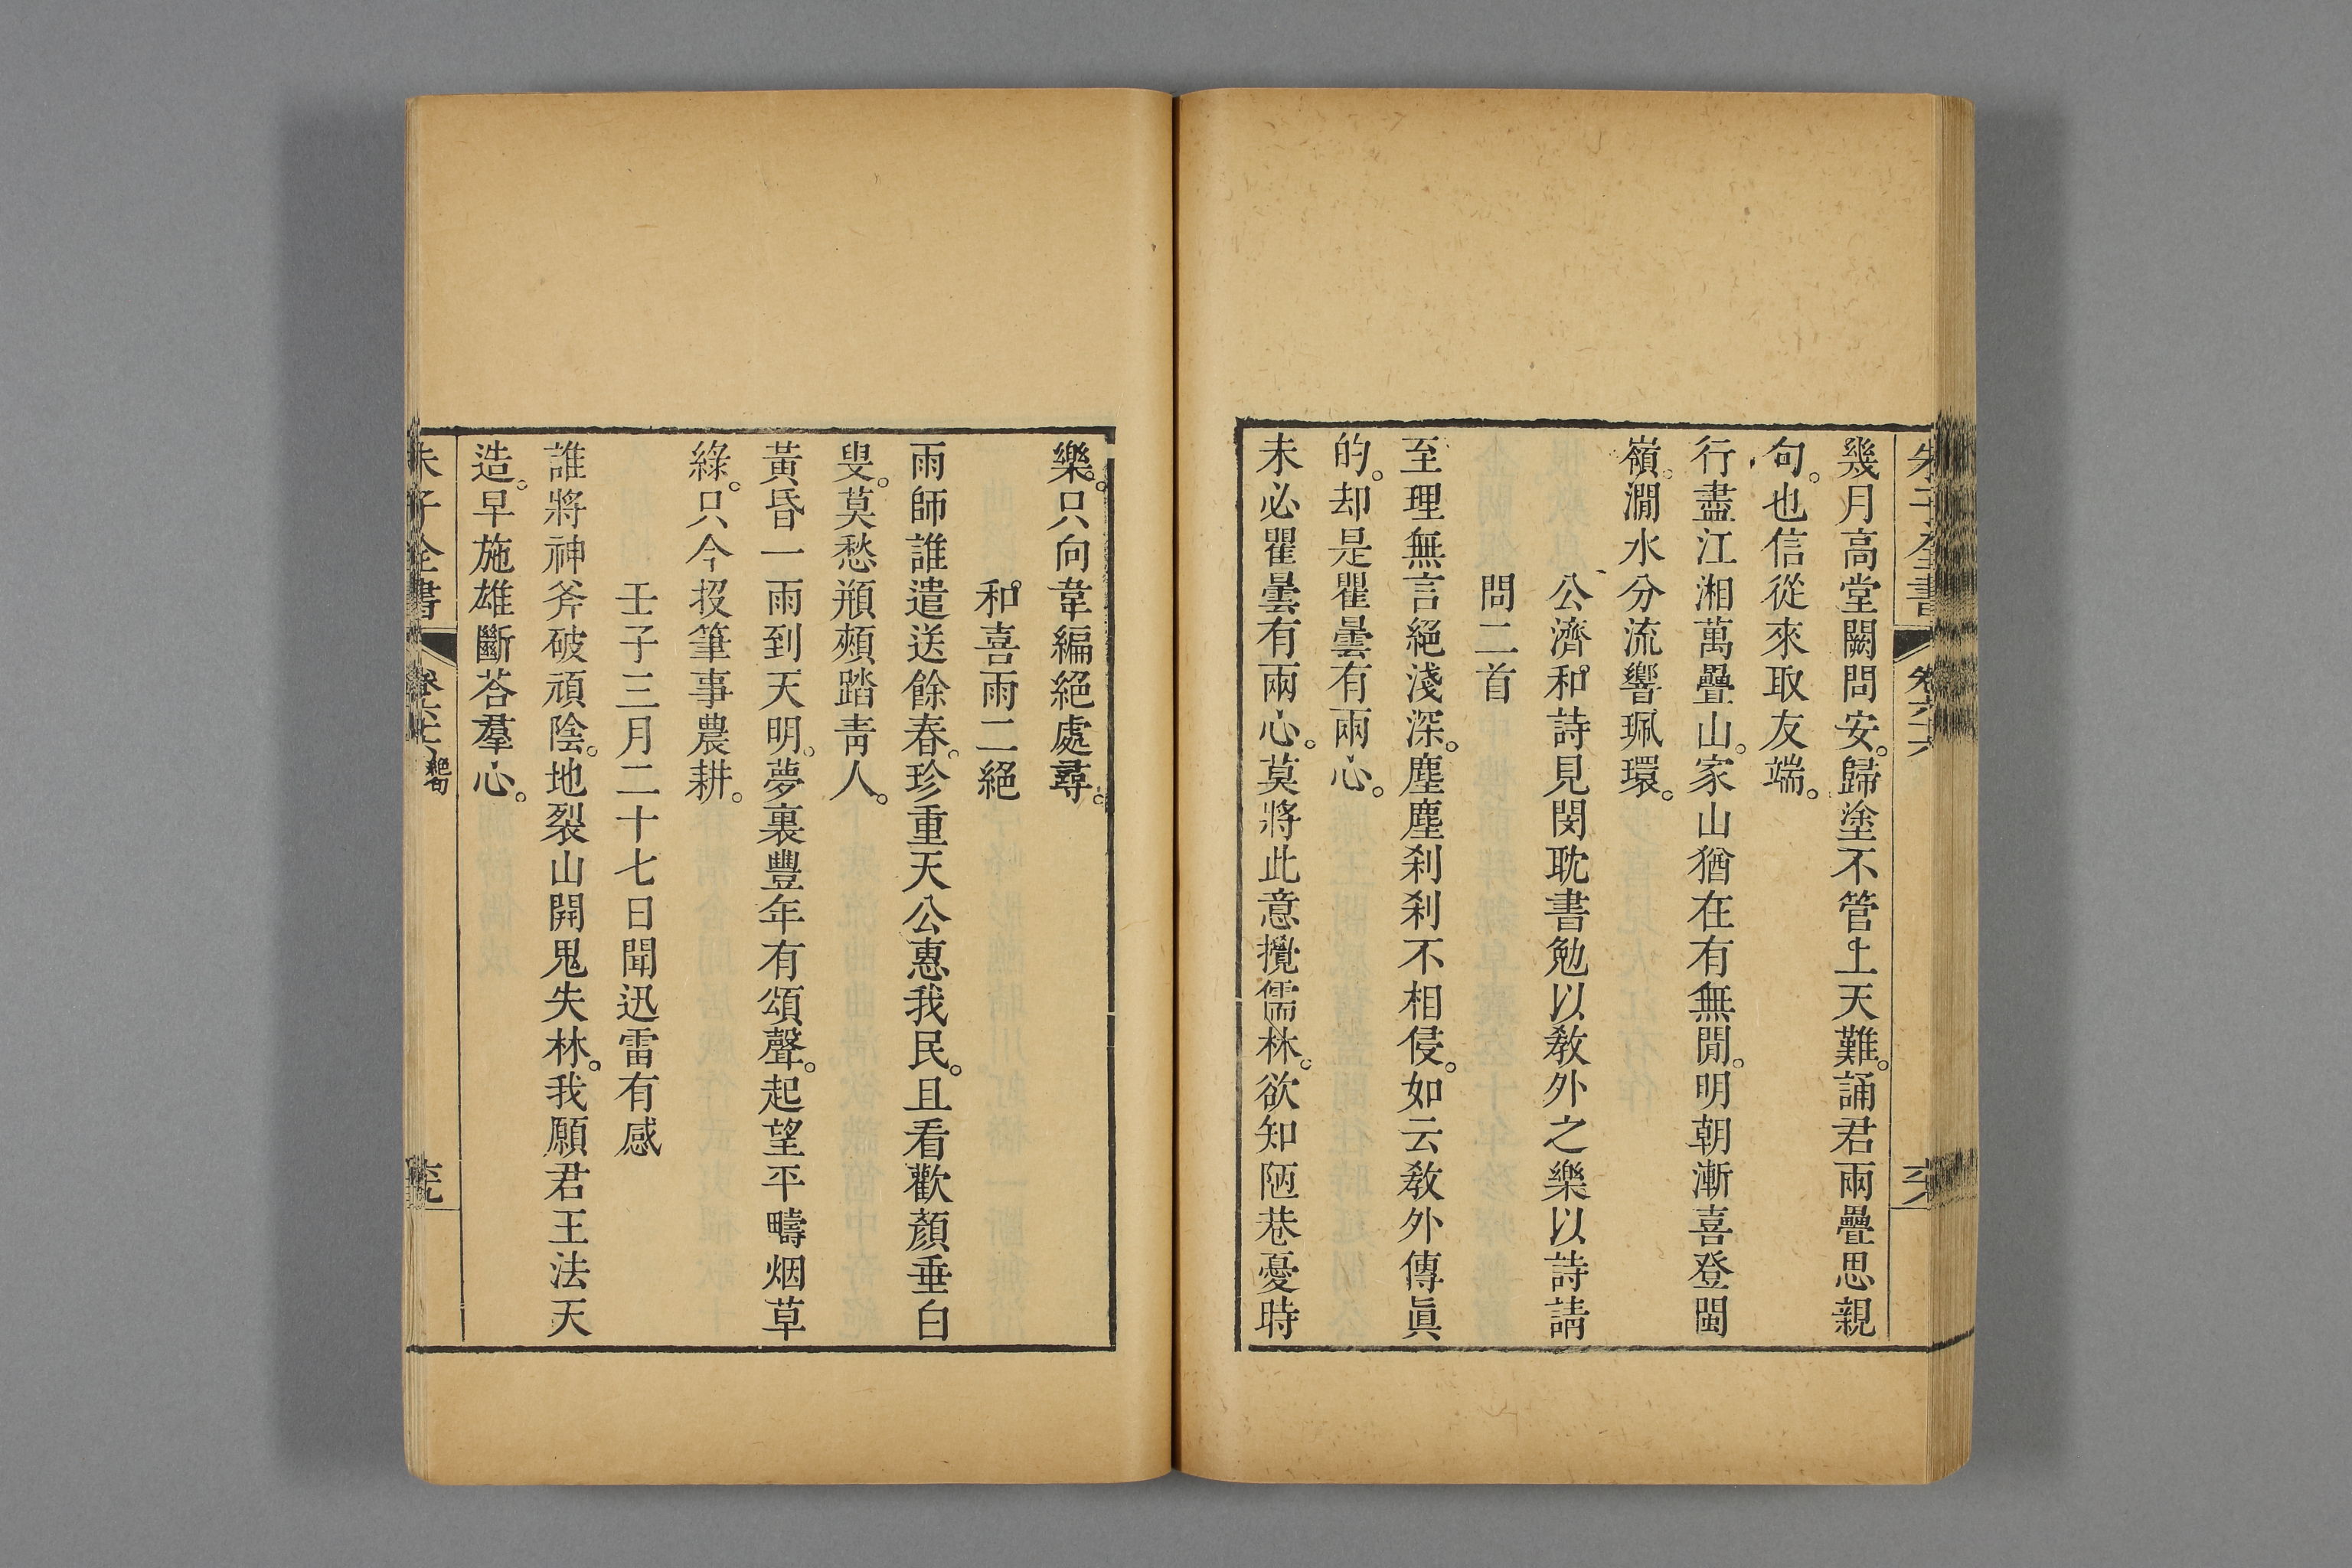 幾月高堂闕問安。歸塗不管上天難。誦君兩疊思親
句。也信從來取友端。
行盡江湘萬疊山。家山猶在有無閒。明朝漸喜登閩
嶺。澗水分流響珮環。
公濟和詩見閔耽書勉以教外之樂以詩請
問二首
至理無言絕淺深。塵塵刹刹不相侵。如云教外傳眞
的。却是瞿曇有兩心。
未必瞿曇有兩心。莫將此意攪儒林。欲知陋巷憂時
樂。只向韋編絕處尋。
和喜雨二絕
雨師誰遣送餘春。珍重天公惠我民。且看歡顏垂白
叟。莫愁頩頰踏靑人。
黃昏一雨到天明。夢裏豐年有頌聲。起望平疇烟草
綠。只今投筆事農耕。
壬子三月二十七日聞迅雷有感
誰將神斧破頑陰。地裂山開鬼失林。我願君王法天
造。早施雄斷荅羣心。
朱子全書
卷六十六
絕句